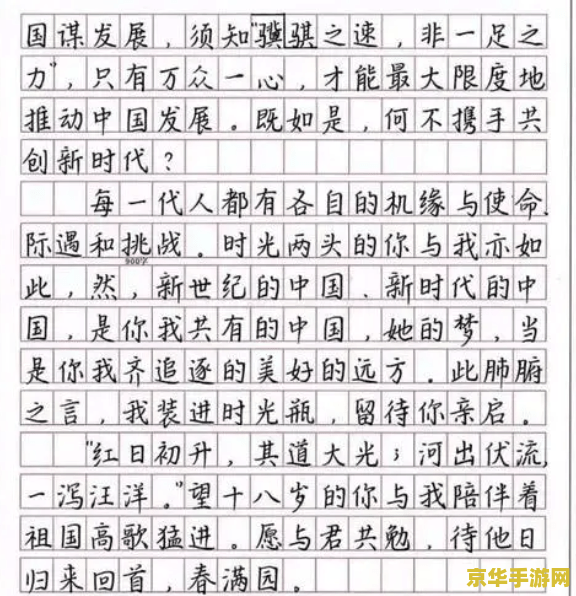 国谋发展，须知"骥骐之速，非一足之
力"，只有万众一心，才能最大限度地
推动中国发展。既如是，何不携手共
创新时代？
每一代人都有各自的机缘与使命、
际遇和挑战。时光两头的你与我亦如
900字
此，然，新世纪的中国、新时代的中
国，是你我共有的中国，她的梦，当
是你我齐追逐的美好的远方。此肺腑
之言，我装进时光瓶，留待你亲启。
"红日初升，其道大光；河出伏流，
一泻汪洋。"望十八岁的你与我陪伴着
祖国高歌猛进。愿与君共勉，待他日
归来回首，春满园。
京华手游网